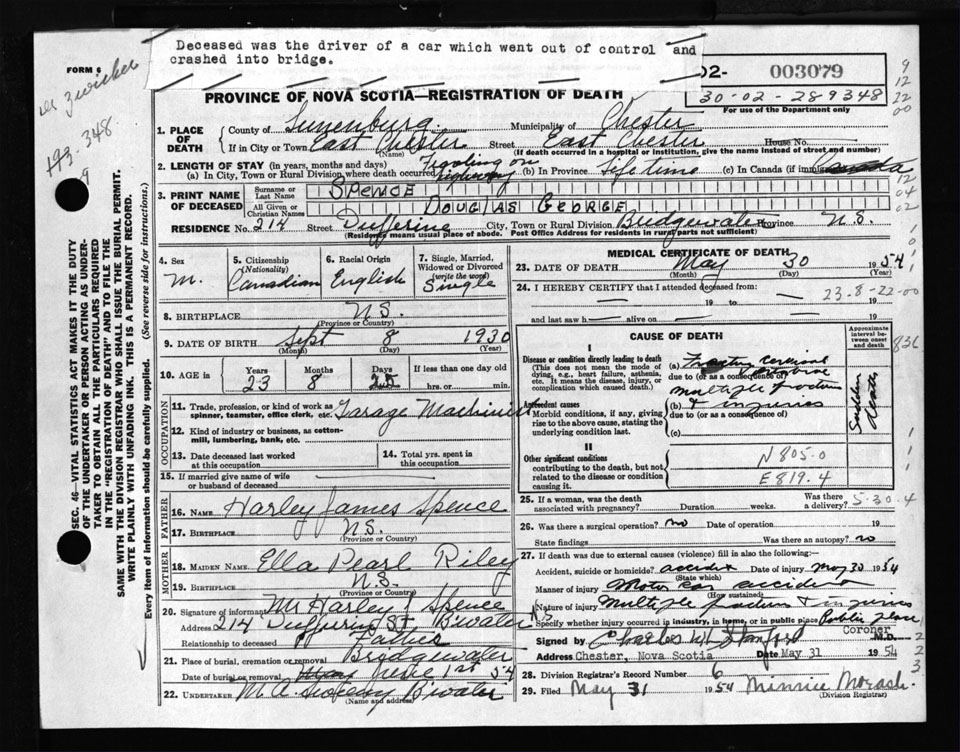 Deceased was the driver of a car which went out of control and
crashed into bridge.
FORM 6
193-348
02- 003079
30-02-289348
For use of the Department only
9
12
22
00
PROVINCE OF NOVA SCOTIA—REGISTRATION OF DEATH
1. PLACE OF DEATH
County of Lunenburg Municipality of Chester
If in City or Town East Chester (Name) Street East Chester House No.
(If death occurred in a hospital or institution, give the name instead of street and number)
2. LENGTH OF STAY (in years, months and days)
(a) In City, Town or Rural Division, where death occurred highway (b) In Province Life time (c) In Canada (if immigrant) Canada
12
04
02
3. PRINT NAME OF DECEASED
Surname or Last SPENCE
All Given or Christian Names DOUGLAS GEORGE
RESIDENCE No. 214 Street Dufferine City, Town or Rural Division Bridgewater Province N.S.
(Residence means usual place of abode. Post Office Address for residents in rural parts not sufficient)
4. Sex M.
5. Citizenship (Nationality) Canadian
6. Racial Origin English
7. Single, Married, Widowed or Divorced (write the word) Single
8. BIRTHPLACE N.S.
(Province or Country)
9. DATE OF BIRTH Sept 8 1930
(Month) (Day) (Year)
10. AGE in Years 23 Months 8 Days If less than one day old hrs. or min.
OCCUPATION
11. Trade, profession, or kind of work as spinner, teamster, office clerk, etc. Garage Machinist
12. Kind of industry or business, as cotton-mill, lumbering, bank, etc.
13. Date deceased last worked at this occupation
14. Total yrs. spent in this occupation
15. If married give name of wife or husband of deceased
FATHER
16. NAME Harley James Spence
17. BIRTHPLACE N.S.
(Province or Country)
MOTHER
18. MAIDEN NAME Ella Pearl Riley
19. BIRTHPLACE N.S.
(Province or Country)
20. Signature of informant Mr Harley J Spence
Address 214 Dufferin St. B'water
Relationship to deceased Father
21. Place of burial, cremation or removal Bridgewater
Date of burial or removal June 1st 54
22. UNDERTAKER M.A. B'water
(Name and address)
MEDICAL CERTIFICATE OF DEATH
23. DATE OF DEATH May 30 1954
(Month) (Day) (Year)
24. I HEREBY CERTIFY that I attended deceased from
19 to 19
23.8-22-00
and last saw h alive on 19
CAUSE OF DEATH
Approximate interval between onset and death
836
I
Disease or condition directly leading to death
(This does not mean the mode of dying, e.g., heart failure, asthenia, etc. It means the disease, injury, or complication which caused death.)
(a) Fracture cervical
due to (or as a consequence of)
multiple fractures
Antecedent causes
Morbid conditions, if any, giving rise to the above cause, stating the underlying condition last.
(b) & injuries
due to (or as a consequence of)
(c)
Sudden death
II
Other significant conditions
contributing to the death, but not related to the disease or condition causing it.
N 805.0
E 819.4
25. If a woman, was the death associated with pregnancy? Duration weeks. Was there a delivery?
5-30-4
26. Was there surgical operation? no Date of operation 19
State findings Was there an autopsy? no
27. If death was due to external causes (violence) fill in also the following:
Accident, suicide or homicide? accident Date of injury May 30 1954
(State which)
Manner of injury Motor car accident
(How sustained)
Nature of injury Multiple fractures & injuries
Specify whether injury occurred in industry, in home, or in public place Public place
Signed by Charles W Stanford Coroner M.D.
Address Chester, Nova Scotia Date May 31 1954
28. Division Registrar's Record Number 6
29. Filed May 31 1954 Minnie Morash
(Division Registrar)
2
2
3
SEC. 46—VITAL STATISTICS ACT MAKES IT THE DUTY
OF THE UNDERTAKER OR PERSON ACTING AS UNDER-
TAKER TO OBTAIN ALL THE PARTICULARS REQUIRED
IN THE "REGISTRATION OF DEATH" AND TO FILE THE
SAME WITH THE DIVISION REGISTRAR WHO SHALL ISSUE THE BURIAL PERMIT.
WRITE PLAINLY WITH UNFADING INK. THIS IS A PERMANENT RECORD.
Every item of information should be carefully supplied. (See reverse side for instructions.)